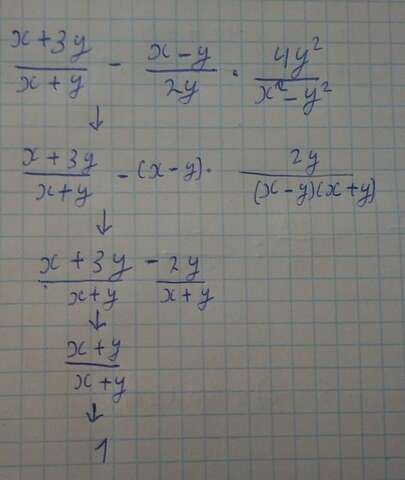 (x+3y)/(x+y) - (x-y)/(2y) · (4y²)/(x²-y²)
↓
(x+3y)/(x+y) - (x-y) · (2y)/((x-y)(x+y))
↓
(x+3y)/(x+y) - (2y)/(x+y)
↓
(x+y)/(x+y)
↓
1